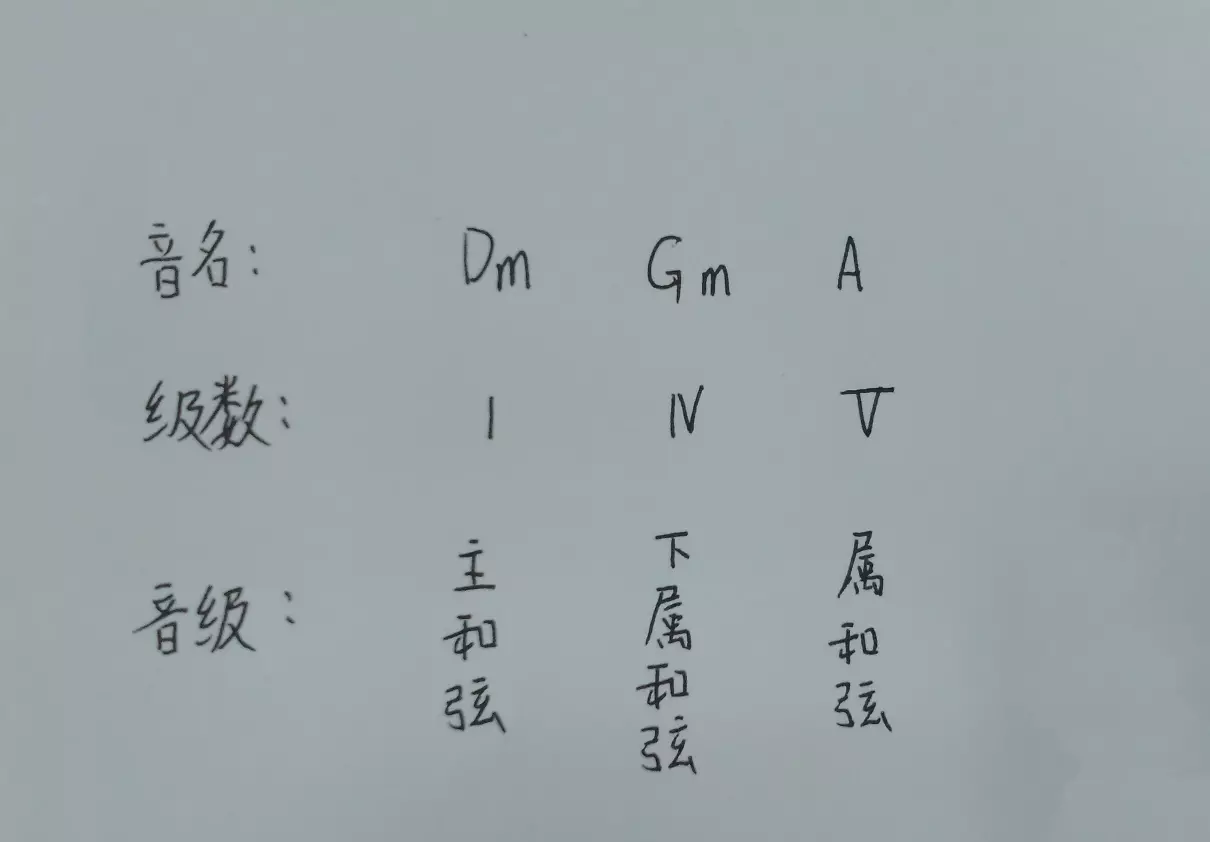 音名: Dm Gm A
级数: Ⅰ Ⅳ Ⅴ
音级: 主和弦 下属和弦 属和弦